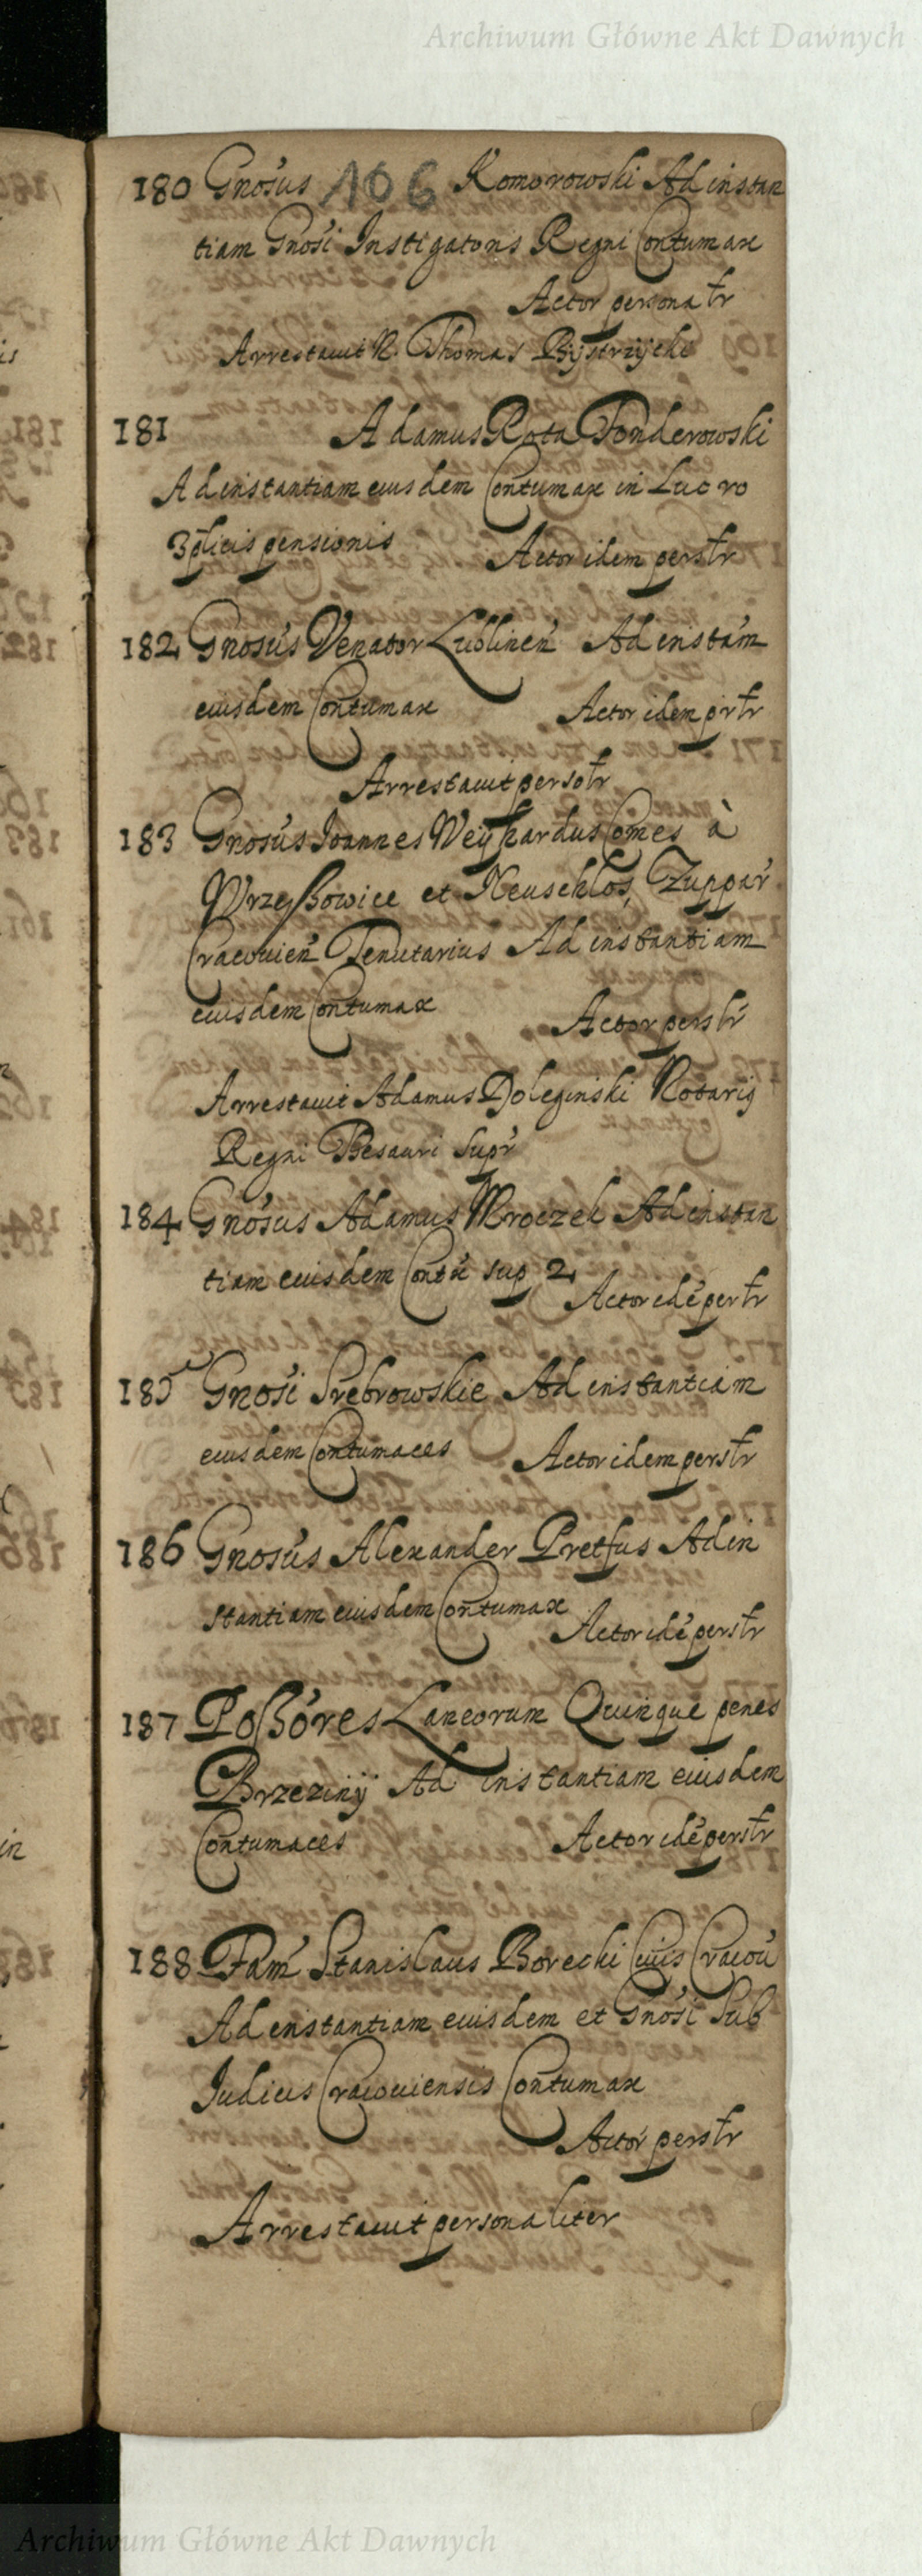 Archiwum Główne Akt Dawnych
180 Gnosus 106 Komorowski Ad instan
tiam Gnosi Instigatoris Regni Contumax
Actor personatr
Arrestavit N. Thomas Bystrzycki
181 Adamus Rota Fonderowski
Ad instantiam eiusdem Contumax in Lucro
3plicis pensionis Actor idem perstr
182 Gnosus Venator Lublinen Ad instam
eiusdem Contumax Actor idem prtr
Arrestavit persotr
183 Gnosus Joannes Weyhardus Comes à
Wrzessowice et Neuschlos, Zuppar
Cracovien Tenutarius Ad instantiam
eiusdem Contumax Actor perstr
Arrestavit Adamus Doleginski Notarij
Regni Thesauri supr
184 Gnosus Adamus Mroczek Ad instan
tiam eiusdem Contx sup 2 Actor idē pertr
185 Gnosi Srebrowskie Ad instantiam
eiusdem Contumaces Actor idem perstr
186 Gnosus Alexander Pretfus Ad in
stantiam eiusdem Contumax Actor idē perstr
187 Possores Laneorum Quinque penes
Brzeziny Ad instantiam eiusdem
Contumaces Actor idē perstr
188 Fam Stanislaus Borecki Civis Cracov
Ad instantiam eiusdem et Gnosi Sub
Judicis Cracoviensis Contumax
Actor perstr
Arrestavit personaliter
Archiwum Główne Akt Dawnych